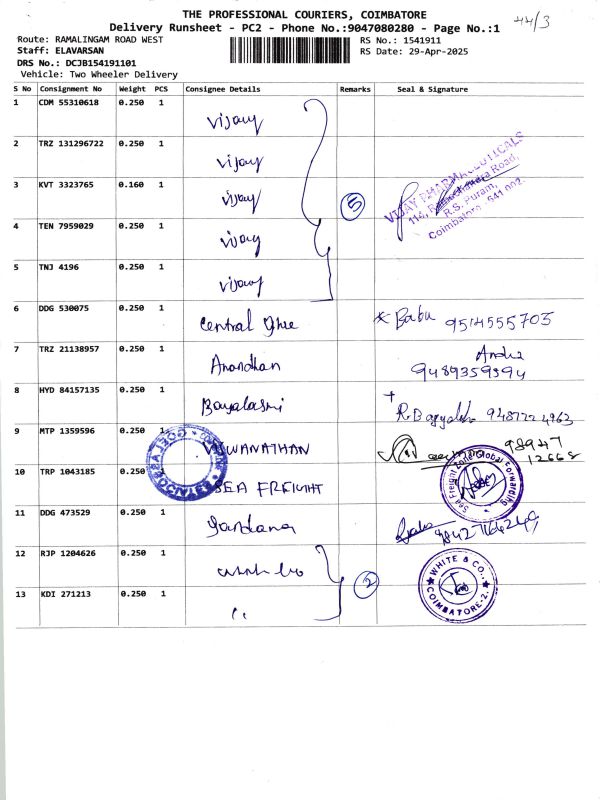 THE PROFESSIONAL COURIERS, COIMBATORE
44/3
Delivery Runsheet - PC2 - Phone No.:9047080280 - Page No.:1
Route: RAMALINGAM ROAD WEST
RS No.: 1541911
Staff: ELAVARSAN
RS Date: 29-Apr-2025
DRS No.: DCJB154191101
Vehicle: Two Wheeler Delivery
S No Consignment No Weight PCS Consignee Details Remarks Seal & Signature
1 CDM 55310618 0.250 1 Vijay
2 TRZ 131296722 0.250 1 Vijay
VIJAY PHARMACEUTICALS
3 KVT 3323765 0.160 1 Vijay 5
R.S. Puram,
Coimbatore - 641 002.
4 TEN 7959029 0.250 1 Vijay
5 TNJ 4196 0.250 1 Vijay
6 DDG 530075 0.250 1 Central Ghee Babu 9514555703
7 TRZ 21138957 0.250 1 Anandhan
9489359394
8 HYD 84157135 0.250 1
9 MTP 1359596 0.250 1 VISWANATHAN 98947
12668
10 TRP 1043185 0.250 1 SEA FREIGHT
Global Forwarding
11 DDG 473529 0.250 1
12 RJP 1204626 0.250 1
2
WHITE & CO.,
COIMBATORE-2.
13 KDI 271213 0.250 1 "